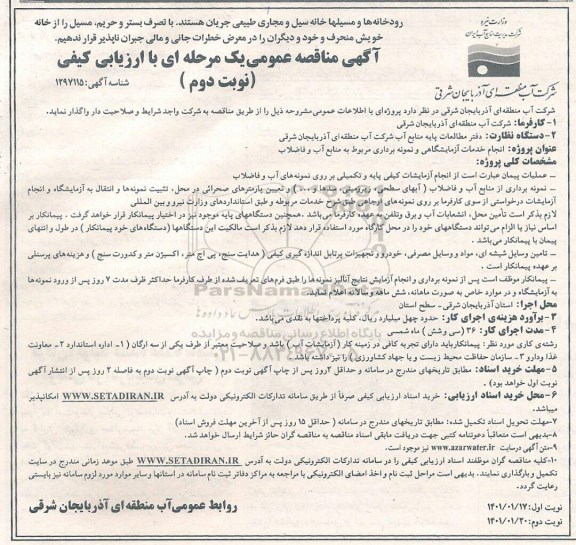 وزارت نیرو
شرکت مدیریت منابع آب ایران
شرکت آب منطقه ای آذربایجان شرقی
رودخانه‌ها و مسیلها خانه سیل و مجاری طبیعی جریان هستند. با تصرف بستر و حریم، مسیل را از خانه
خویش منحرف و خود و دیگران را در معرض خطرات جانی و مالی جبران ناپذیر قرار ندهیم.
آگهی مناقصه عمومی یک مرحله ای با ارزیابی کیفی
(نوبت دوم)
شناسه آگهی: ۱۲۹۷۱۱۵
شرکت آب منطقه‌ای آذربایجان شرقی در نظر دارد پروژه‌ای با اطلاعات عمومی مشروحه ذیل را از طریق مناقصه به شرکت واجد شرایط و صلاحیت دار واگذار نماید.
۱- کارفرما: شرکت آب منطقه‌ای آذربایجان شرقی
۲- دستگاه نظارت: دفتر مطالعات پایه منابع آب شرکت آب منطقه ای آذربایجان شرقی
عنوان پروژه: انجام خدمات آزمایشگاهی و نمونه برداری مربوط به منابع آب و فاضلاب
مشخصات کلی پروژه:
– عملیات پیمان عبارت است از انجام آزمایشات کیفی پایه و تکمیلی بر روی نمونه‌های آب و فاضلاب
– نمونه برداری از منابع آب و فاضلاب (آبهای سطحی، زیرزمینی، سدها و ....) و تعیین پارامترهای صحرائی در محل، تثبیت نمونه‌ها و انتقال به آزمایشگاه و انجام
آزمایشات درخواستی از سوی کارفرما بر روی نمونه‌های ارجاعی مطابق شرح خدمات مربوطه و طبق استانداردهای وزارت نیرو و بین المللی
لازم بذکر است تأمین محل، انشعابات آب و برق وتلفن به عهده کارفرما می‌باشد. همچنین دستگاههای پایه موجود نیز در اختیار پیمانکار قرار خواهد گرفت. پیمانکار بر
اساس نیاز یا الزام می‌تواند دستگاههای خود را در محل کارگاه مورد استفاده قرار دهد لازم بذکر است مالکیت این دستگاهها (دستگاه‌های خود پیمانکار) در طول و انتهای
پیمان با پیمانکار می‌باشد.
– تامین وسایل شیشه ای، مواد و وسایل مصرفی، خودرو و تجهیزات پرتابل اندازه گیری کیفی (هدایت سنج، پی اچ متر، اکسیژن متر و کدورت سنج) و هزینه‌های پرسنلی
بر عهده پیمانکار است.
– پیمانکار موظف است پس از نمونه برداری و انجام آزمایش نتایج آنالیز نمونه‌ها را طبق فرم‌های تعریف شده از طرف کارفرما حداکثر ظرف مدت ۷ روز پس از ورود نمونه‌ها
به آزمایشگاه و در موارد خاص به صورت ماهانه، شش ماهه و سالانه اعلام نماید.
محل اجرا: استان آذربایجان شرقی – سطح استان
۳- برآورد هزینه‌ی اجرای کار: حدود چهل میلیارد ریال، کلیه پرداختها به نقدی می‌باشد.
۴- مدت اجرای کار: ۳۶ (سی وشش) ماه شمسی
رشته‌ی کاری مورد نظر: پیمانکار باید دارای تجربه کافی در زمینه کار (آزمایشات آب) باشد و صلاحیت معتبر از طرف یکی از سه ارگان (۱- اداره استاندارد ۲- معاونت
غذا و دارو ۳- سازمان حفاظت محیط زیست و یا جهاد کشاورزی) را نیز داشته باشد.
۵- مهلت خرید اسناد: مطابق تاریخهای مندرج در سامانه و حداقل ۲ روز پس از چاپ آگهی نوبت دوم (چاپ آگهی نوبت دوم به فاصله ۲ روز پس از انتشار آگهی
نوبت اول خواهد بود).
۶- محل خرید اسناد ارزیابی: خرید اسناد ارزیابی کیفی صرفاً از طریق سامانه تدارکات الکترونیکی دولت به آدرس WWW.SETADIRAN.IR امکانپذیر
میباشد.
۷- مهلت تحویل اسناد تکمیل شده: مطابق تاریخهای مندرج در سامانه (حداقل ۱۵ روز پس از آخرین مهلت فروش اسناد)
۸- بدیهی است متعاقباً دعوتنامه کتبی جهت دریافت مابقی اسناد مناقصه به مناقصه گران حائز شرایط ارسال خواهد شد.
۹- متن آگهی درسایت www.azarwater.ir نیز موجود است.
۱۰- کلیه مناقصه گران موظفند اسناد ارزیابی کیفی را در سامانه تدارکات الکترونیکی دولت به آدرس WWW.SETADIRAN.IR طبق موعد زمانی مندرج در سایت
تکمیل و بارگذاری نمایند. بدیهی است مراحل ثبت نام و اخذ امضای الکترونیکی با مراجعه به مراکز دفاتر ثبت نام سامانه در استانها و سایر موارد مورد لزوم سامانه نیز بایستی
رعایت گردد.
نوبت اول: ۱۴۰۱/۰۱/۱۷
نوبت دوم: ۱۴۰۱/۰۱/۲۰
روابط عمومی آب منطقه ای آذربایجان شرقی
ParsNamadData
پایگاه اطلاع رسانی مناقصه و مزایده